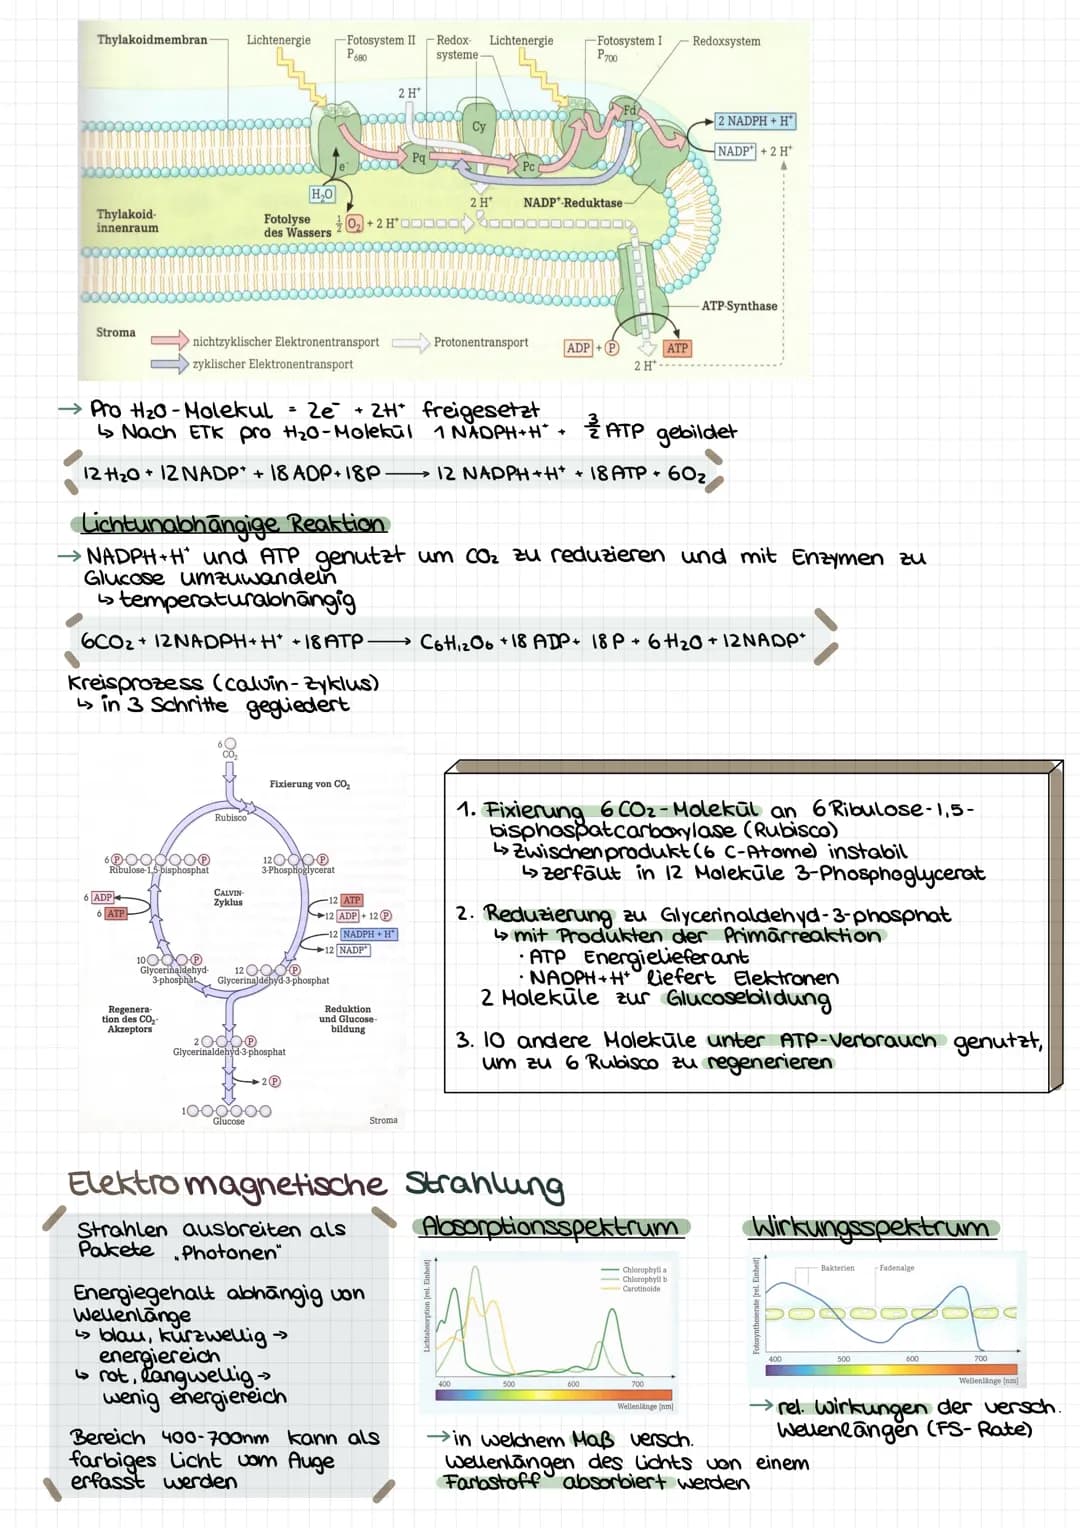 Thylakoidmembran
Lichtenergie
Fotosystem II
P680
Redox-
systeme
Lichtenergie
Fotosystem I
P700
Redoxsystem
2 H⁺
Cy
Fd
2 NADPH + H⁺
NADP⁺ + 2 H⁺
Pq
Pc
e⁻
H₂O
2 H⁺
NADP⁺-Reduktase
Thylakoid-
innenraum
Fotolyse
des Wassers
½ O₂ + 2 H⁺
ATP-Synthase
Stroma
nichtzyklischer Elektronentransport
Protonentransport
ADP + P
ATP
zyklischer Elektronentransport
2 H⁺
→ Pro H₂O-Molekul = 2e⁻ + 2H⁺ freigesetzt
↳ Nach ETK pro H₂O-Molekül 1 NADPH+H⁺ + 3/2 ATP gebildet
12 H₂O + 12 NADP⁺ + 18 ADP + 18P → 12 NADPH+H⁺ + 18 ATP + 6O₂
Lichtunabhängige Reaktion
→ NADPH+H⁺ und ATP genutzt um CO₂ zu reduzieren und mit Enzymen zu
Glucose umzuwandeln
↳ temperaturabhängig
6CO₂ + 12NADPH+H⁺ + 18 ATP → C₆H₁₂O₆ + 18 ADP + 18 P + 6 H₂O + 12 NADP⁺
Kreisprozess (Calvin-Zyklus)
↳ in 3 Schritte gegliedert
6
CO₂
Fixierung von CO₂
Rubisco
6 P P
Ribulose-1,5-bisphosphat
12 P
3-Phosphoglycerat
CALVIN-
Zyklus
6 ADP
6 ATP
12 ATP
12 ADP + 12 P
12 NADPH + H⁺
12 NADP⁺
10 P
Glycerinaldehyd-
3-phosphat
12 P
Glycerinaldehyd-3-phosphat
Regenera-
tion des CO₂-
Akzeptors
Reduktion
und Glucose-
bildung
2 P
Glycerinaldehyd-3-phosphat
2 P
1
Glucose
Stroma
1. Fixierung 6 CO₂-Molekül an 6 Ribulose-1,5-
bisphospatcarboxylase (Rubisco)
↳ Zwischenprodukt (6 C-Atome) instabil
↳ zerfällt in 12 Moleküle 3-Phosphoglycerat
2. Reduzierung zu Glycerinaldehyd-3-phosphat
↳ mit Produkten der Primärreaktion
· ATP Energielieferant
· NADPH+H⁺ liefert Elektronen
2 Moleküle zur Glucosebildung
3. 10 andere Moleküle unter ATP-Verbrauch genutzt,
um zu 6 Rubisco zu regenerieren
Elektromagnetische Strahlung
Strahlen ausbreiten als
Pakete „Photonen"
Energiegehalt abhängig von
Wellenlänge
↳ blau, kurzwellig →
energiereich
↳ rot, langwellig →
wenig energiereich
Bereich 400-700nm kann als
farbiges Licht vom Auge
erfasst werden
Absorptionsspektrum
Lichtabsorption [rel. Einheit]
Chlorophyll a
Chlorophyll b
Carotinoide
400
500
600
700
Wellenlänge [nm]
→ in welchem Maß versch.
Wellenlängen des Lichts von einem
Farbstoff absorbiert werden
Wirkungsspektrum
Fotosyntheserate [rel. Einheit]
Bakterien
Fadenalge
400
500
600
700
Wellenlänge [nm]
→ rel. Wirkungen der versch.
Wellenlängen (FS-Rate)